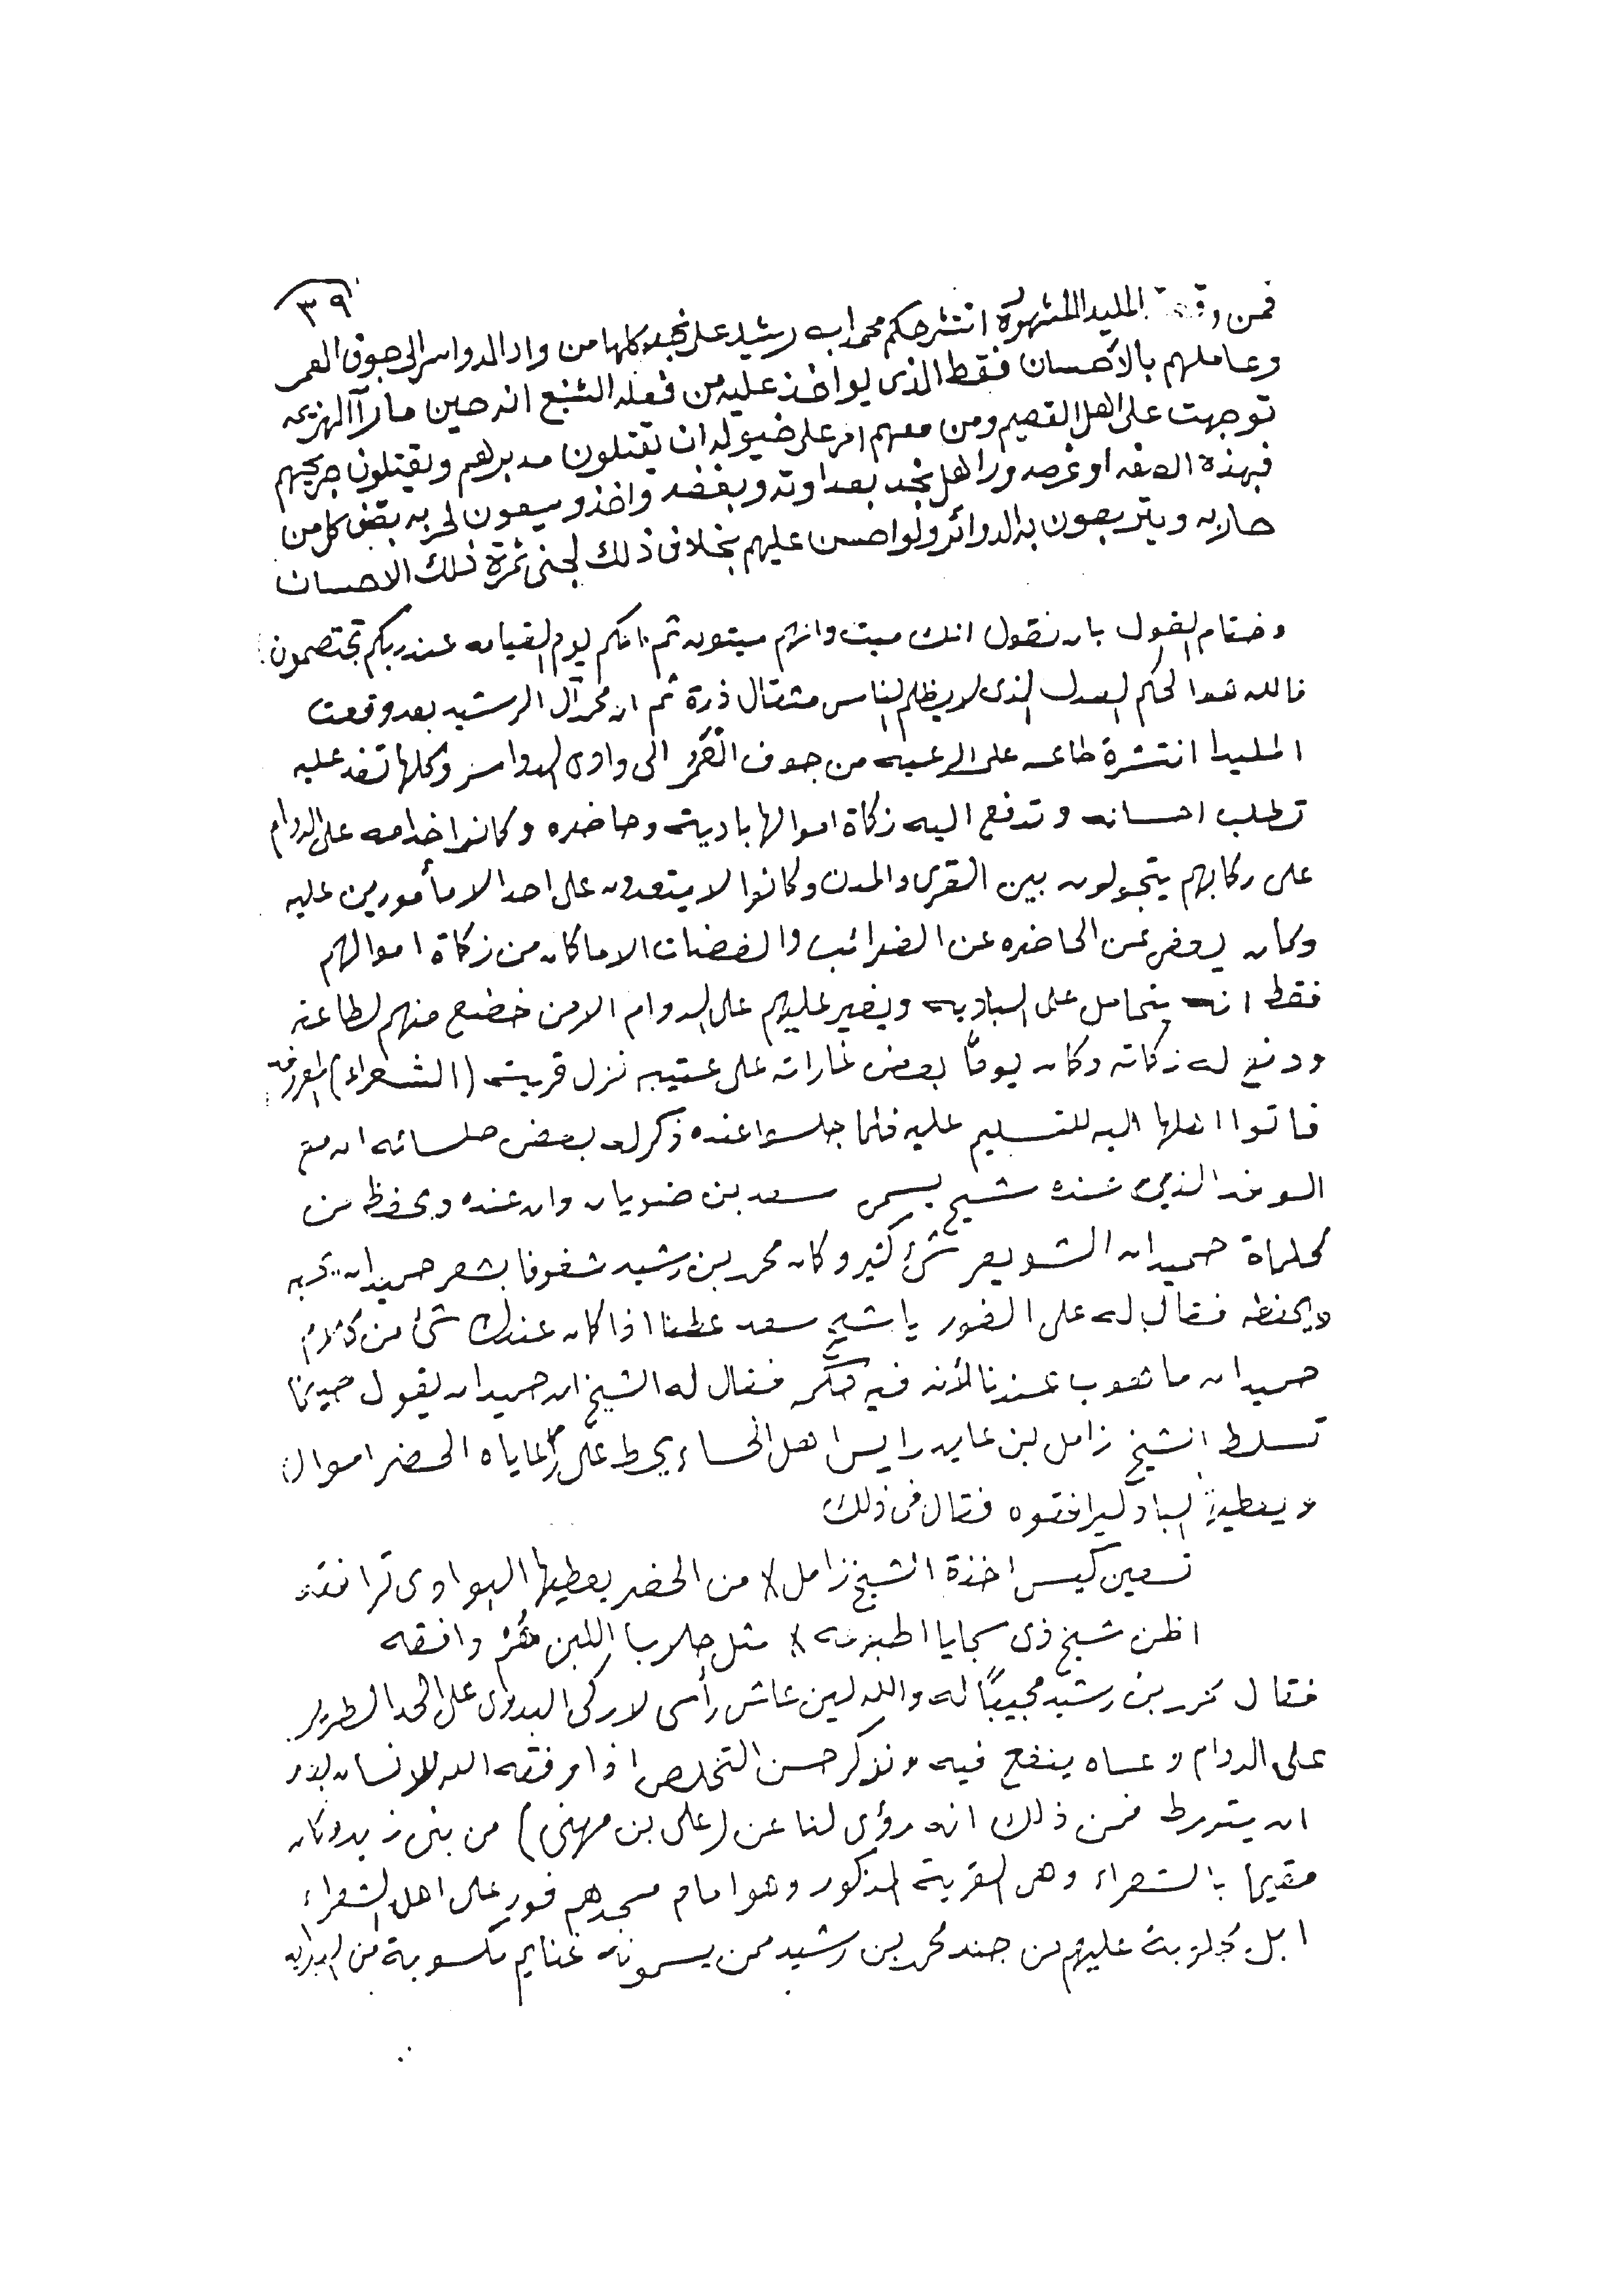 ٣٩
فمن وقعة المليدا المشهورة انتشر حكم محمد ابن رشيد على نجد كلها من واد الدواسر الى جوف العمر
وعاملهم بالأحسان فقط الذى يواخذ عليه من فعله الشنيع انه حين ما رآ الهزيمه
توجهت على اهل القصيم ومن معهم امر على خيوله ان يقتلون مدبرهم ويقتلون جريحهم
فبهذه الصفه اوغر صدور اهل نجد بعداوته وبغضه واخذو يسعون لحربه بقض كل من
حاربه ويتربصون به الدوائر ولو احسن عليهم بخلاف ذلك لجنى ثمرة ذلك الاحسان
وختام القول بان نقول انك ميت وانهم ميتون ثم انكم يوم القيامه عند ربكم تختصمون
فالله هو الحكم العدل الذى لا يظلم الناس مثقال ذرة ثم ان محمد آل الرشيد بعد وقعت
المليدا انتشرة طاعته على الرعيه من جوف العمر الى وادى الدواسر وكلها تفد عليه
تطلب احسانه وتدفع اليه زكاة اموالها باديته وحاضره وكانوا خدامه على الدوام
على ركابهم يتجولون بين القرى والمدن وكانوا لا يتعدون على احد الا مأمورين عليه
وكان يعفى عن الحاضره عن الضرائب والضضات الا ما كان من زكاة اموالهم
فقط انه يتحامل على الباديه ويغير عليهم على الدوام الا من خضع منهم لطاعته
ودفع له زكاته وكان يوماً بعض غاراته على عتيبه نزل قريت (الشعراء) المعروفه
فاتوا اهلها اليه للتسليم عليه فلما جلسوا عنده ذكر له بعض جلسائه ان مع
الوفد الذين عنده شيخ يسمى سعد بن ضويان وان عنده ويحفظ من
كلماة حميدان الشويعر شئ كثير وكان محمد بن رشيد شغوفا بشعر حميدان يحبه
ويحفظه فقال له على الفور يا شيخ سعد عطنا اذا كان عندك شئ من كلام
حميدان ما هوب عندنا لأنه فيه حكم فقال له الشيخ ان حميدان يقول حينما
تسلط الشيخ زامل بن عايد رايس اهل الحساء يحط على رعاياه الحضر اموال
ويعطيها الباد ليرافقوه فقال فى ذلك
تسعين كيس اخذة الشيخ زامل * من الحضر يعطيها البوادى ترافقه
اظن شيخ ذى سجايا اطبوعه * مثل جلاب اللبن وافقه
فقال محمد بن رشيد مجيباً له والله لين عاش رأسى لاركى البدوى على الحد الطرير
على الدوام وعساه ينفع فيه ونذكر حسن التخلص اذا وفقه الله للانسان بدو
ان يتورط فمن ذلك انه رؤى لنا عن (على بن مهنى) من بنى زيد وكان
مقيما بالشعراء وهى القرية المذكور وهو امام مسجدهم فور على اهل الشعراء
ابل مجلوبة عليهم من جند محمد بن رشيد ممن يسمونه غنايم مكسوبة من الباديه